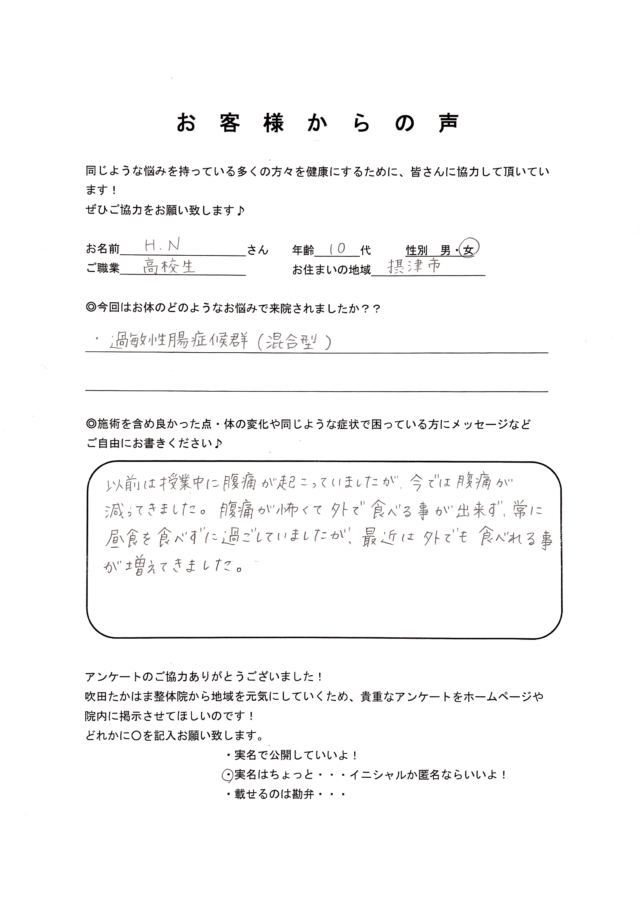 お客様からの声
同じような悩みを持っている多くの方々を健康にするために、皆さんに協力して頂いてい
ます！
ぜひご協力をお願い致します♪
お名前 H.N さん 年齢 10 代 性別 男・女
ご職業 高校生 お住まいの地域 摂津市
◎今回はお体のどのようなお悩みで来院されましたか？？
・過敏性腸症候群(混合型)
◎施術を含め良かった点・体の変化や同じような症状で困っている方にメッセージなど
ご自由にお書きください♪
以前は授業中に腹痛が起こっていましたが、今では腹痛が
減ってきました。腹痛が怖くて外で食べる事が出来ず、常に
昼食を食べずに過ごしていましたが、最近は外でも食べれる事
が増えてきました。
アンケートのご協力ありがとうございました！
吹田たかはま整体院から地域を元気にしていくため、貴重なアンケートをホームページや
院内に掲示させてほしいのです！
どれかに〇を記入お願い致します。
・実名で公開していいよ！
・実名はちょっと・・・イニシャルか匿名ならいいよ！
・載せるのは勘弁・・・